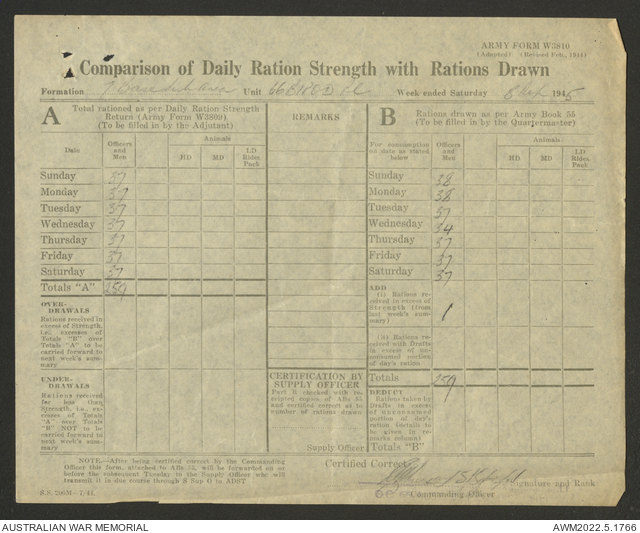 ARMY FORM W3810
(Adapted) (Revised Feb., 1944)
Comparison of Daily Ration Strength with Rations Drawn
Formation Unit Week ended Saturday 1945
A
Total rationed as per Daily Ration Strength
Return (Army Form W3809)
(To be filled in by the Adjutant)
REMARKS
B
Rations drawn as per Army Book 55
(To be filled in by the Quartermaster)
Date Officers and Men Animals HD MD LD Rides Pack
For consumption on date as stated below Officers and Men Animals HD MD LD Rides Pack
Sunday 37 Sunday 38
Monday 37 Monday 38
Tuesday 37 Tuesday 37
Wednesday 37 Wednesday 34
Thursday 37 Thursday 37
Friday 37 Friday 37
Saturday 37 Saturday 37
Totals "A" 259
OVER-
DRAWALS
Rations received in
excess of Strength,
i.e., excesses of
Totals "B" over
Totals "A" to be
carried forward to
next week's sum-
mary
UNDER-
DRAWALS
Rations received
far less than
Strength, i.e., ex-
cesses of Totals
"A" over Totals
"B" NOT to be
carried forward to
next week's sum-
mary
CERTIFICATION BY
SUPPLY OFFICER
Part B checked with re-
ceipted copies of ABs 55
and certified correct as to
number of rations drawn
Supply Officer
ADD
(i) Rations re-
ceived in excess of
Strength (from
last week's sum-
mary) 1
(ii) Rations re-
ceived with Drafts
in excess of un-
consumed portion
of day's ration
Totals 259
DEDUCT
Rations taken by
Drafts in excess
of unconsumed
portion of day's
ration (details to
be given in re-
marks column)
Totals "B"
NOTE.—After being certified correct by the Commanding
Officer this form, attached to ABs 55, will be forwarded on or
before the subsequent Tuesday to the Supply Officer who will
transmit it in due course through S Sup O to ADST
Certified Correct
Signature and Rank
Commanding Officer
AUSTRALIAN WAR MEMORIAL AWM2022.5.1766